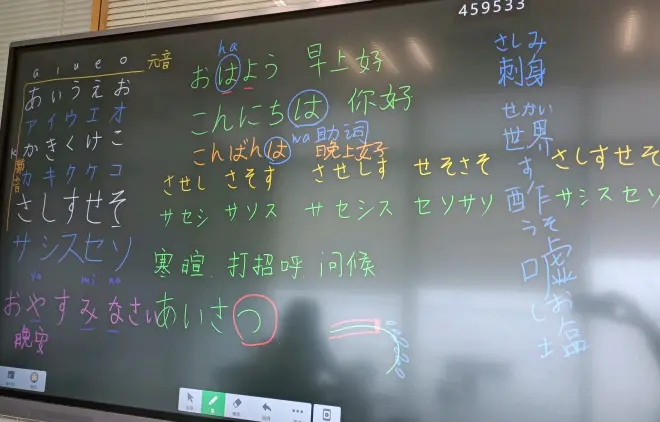 459533
a i u e o 元音
あ い う え お
ア イ ウ エ オ
k か き く け こ
カ キ ク ケ コ
さ し す せ そ
サ シ ス セ ソ
ya mi na
お や す み な さい
晩安
ha
おはよう 早上好
こんにちは 你好
wa 助词
こんばんは 晚上好
させし さそす させしす せそさそ さしすせそ
サセシ サソス サセシス セソサソ サシスセソ
寒暄、打招呼、问候
あいさつ
さしみ
刺身
せかい
世界
す
酢
うそ
嘘
しお
塩